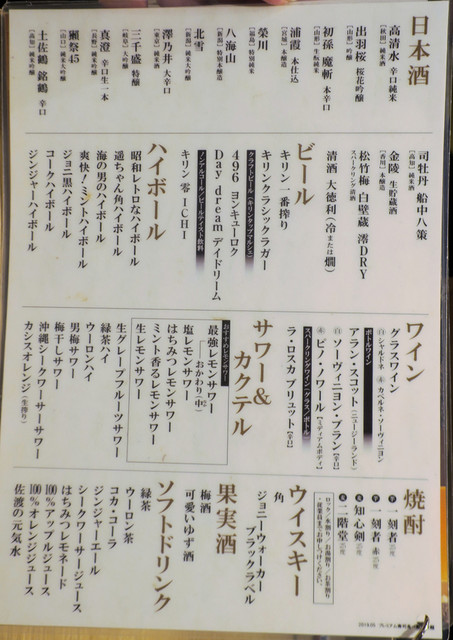 日本酒
高清水 辛口純米
【秋田】純米酒
出羽桜 桜花吟醸
【山形】吟醸
初孫 魔斬 本辛口
【山形】生酛純米
浦霞 本仕込
【宮城】本醸造
榮川
【福島】特別純米
八海山
【新潟】特別本醸造
北雪
【新潟】純米大吟醸
澤乃井 大辛口
【東京】純米酒
三千盛 特醸
【岐阜】
真澄 辛口生一本
【長野】純米吟醸
獺祭45
【山口】純米大吟醸
土佐鶴 銘鶴 辛口
【高知】純米吟醸
司牡丹 船中八策
【高知】純米酒
金陵 生貯蔵酒
【香川】本醸造
松竹梅 白壁蔵 澪DRY
スパークリング清酒
清酒 大徳利（冷または燗）
ビール
キリン 一番搾り
キリンクラシックラガー
クラフトビール(キリンタップマルシェ)
496 ヨンキューロク
Day dream デイドリーム
ノンアルコール/ビールテイスト飲料
キリン 零 ICHI
ハイボール
昭和レトロなハイボール
遥ちゃん角ハイボール
海の男のハイボール
爽快！ミントハイボール
ジョニ黒ハイボール
コークハイボール
ジンジャーハイボール
ワイン
グラスワイン
白 シャルドネ 赤 カベルネ・ソーヴィニヨン
ボトルワイン
アラン・スコット(ニュージーランド)
白 ソーヴィニヨン・ブラン【辛口】
赤 ピノ・ノワール【ミディアムボディ】
スパークリングワイン グラス/ボトル
ラ・ロスカ ブリュット【辛口】
サワー&カクテル
おすすめレモンサワー
最強レモンサワー
おかわり(中)
塩レモンサワー
はちみつレモンサワー
ミント香るレモンサワー
生レモンサワー
生グレープフルーツサワー
緑茶ハイ
ウーロンハイ
男梅サワー
梅干しサワー
沖縄シークワーサーサワー
カシスオレンジ(生搾り)
焼酎
芋 一刻者 25度
芋 一刻者 赤 25度
麦 知心剣 25度
麦 二階堂 25度
ロック/水割り/お湯割り/お茶割り
・従業員までお申しつけください・
ウイスキー
角
ジョニーウォーカー
ブラックラベル
果実酒
梅酒
可愛いゆず酒
ソフトドリンク
緑茶
ウーロン茶
コカ・コーラ
ジンジャーエール
シークワーサージュース
はちみつレモネード
100% アップルジュース
100% オレンジジュース
佐渡の元気水